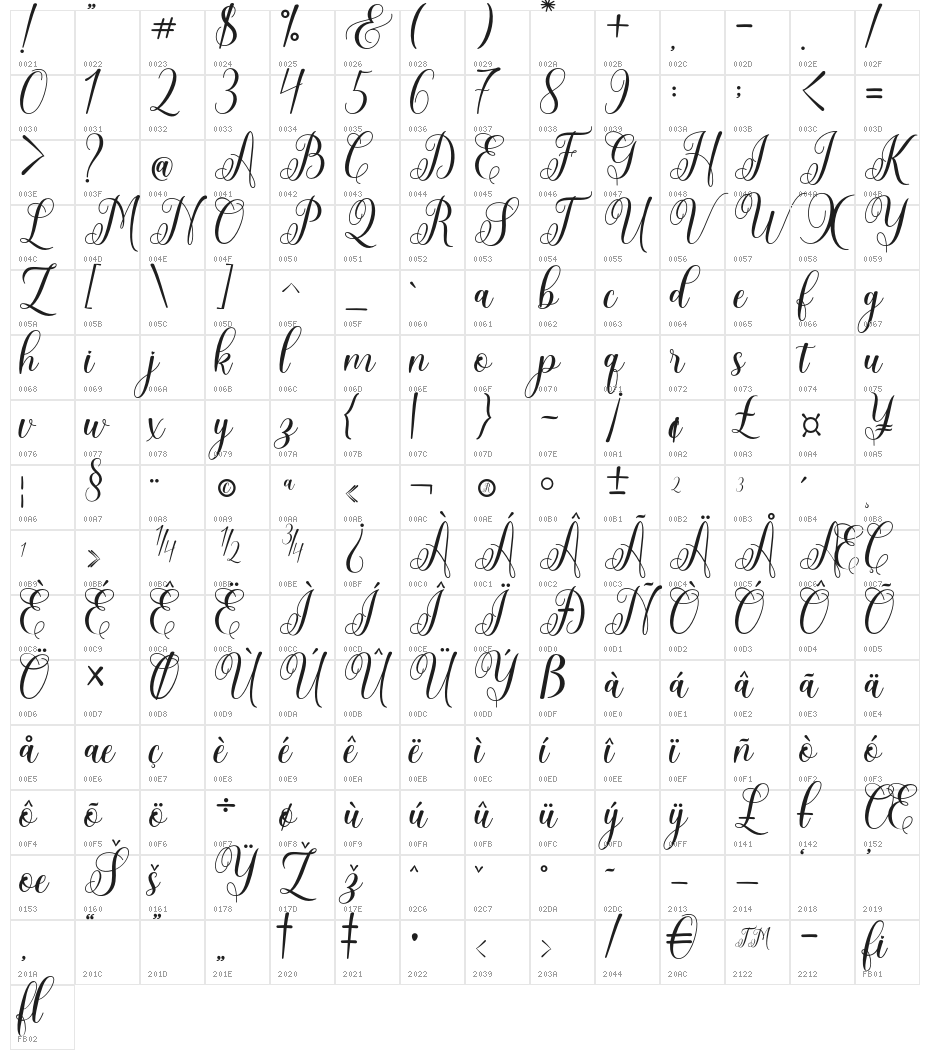 ! " # $ % & ( ) * + , - . /
0021 0022 0023 0024 0025 0026 0028 0029 002A 002B 002C 002D 002E 002F
0 1 2 3 4 5 6 7 8 9 : ; < =
0030 0031 0032 0033 0034 0035 0036 0037 0038 0039 003A 003B 003C 003D
> ? @ A B C D E F G H I J K
003E 003F 0040 0041 0042 0043 0044 0045 0046 0047 0048 0049 004A 004B
L M N O P Q R S T U V W X Y
004C 004D 004E 004F 0050 0051 0052 0053 0054 0055 0056 0057 0058 0059
Z [ \ ] ^ _ ` a b c d e f g
005A 005B 005C 005D 005E 005F 0060 0061 0062 0063 0064 0065 0066 0067
h i j k l m n o p q r s t u
0068 0069 006A 006B 006C 006D 006E 006F 0070 0071 0072 0073 0074 0075
v w x y z { | } ~ ¡ ¢ £ ¤ ¥
0076 0077 0078 0079 007A 007B 007C 007D 007E 00A1 00A2 00A3 00A4 00A5
¦ § ¨ © ª « ¬ ® ° ± ² ³ ´ ¸
00A6 00A7 00A8 00A9 00AA 00AB 00AC 00AE 00B0 00B1 00B2 00B3 00B4 00B8
¹ » ¼ ½ ¾ ¿ À Á Â Ã Ä Å Æ Ç
00B9 00BB 00BC 00BD 00BE 00BF 00C0 00C1 00C2 00C3 00C4 00C5 00C6 00C7
È É Ê Ë Ì Í Î Ï Ð Ñ Ò Ó Ô Õ
00C8 00C9 00CA 00CB 00CC 00CD 00CE 00CF 00D0 00D1 00D2 00D3 00D4 00D5
Ö × Ø Ù Ú Û Ü Ý ß à á â ã ä
00D6 00D7 00D8 00D9 00DA 00DB 00DC 00DD 00DF 00E0 00E1 00E2 00E3 00E4
å æ ç è é ê ë ì í î ï ñ ò ó
00E5 00E6 00E7 00E8 00E9 00EA 00EB 00EC 00ED 00EE 00EF 00F1 00F2 00F3
ô õ ö ÷ ø ù ú û ü ý ÿ Ł ł Œ
00F4 00F5 00F6 00F7 00F8 00F9 00FA 00FB 00FC 00FD 00FF 0141 0142 0152
œ Š š Ÿ Ž ž ˆ ˇ ˚ ˜ – — ‘ ’
0153 0160 0161 0178 017D 017E 02C6 02C7 02DA 02DC 2013 2014 2018 2019
‚ “ ” „ † ‡ • ‹ › ⁄ € ™ − fi
201A 201C 201D 201E 2020 2021 2022 2039 203A 2044 20AC 2122 2212 FB01
fl
FB02